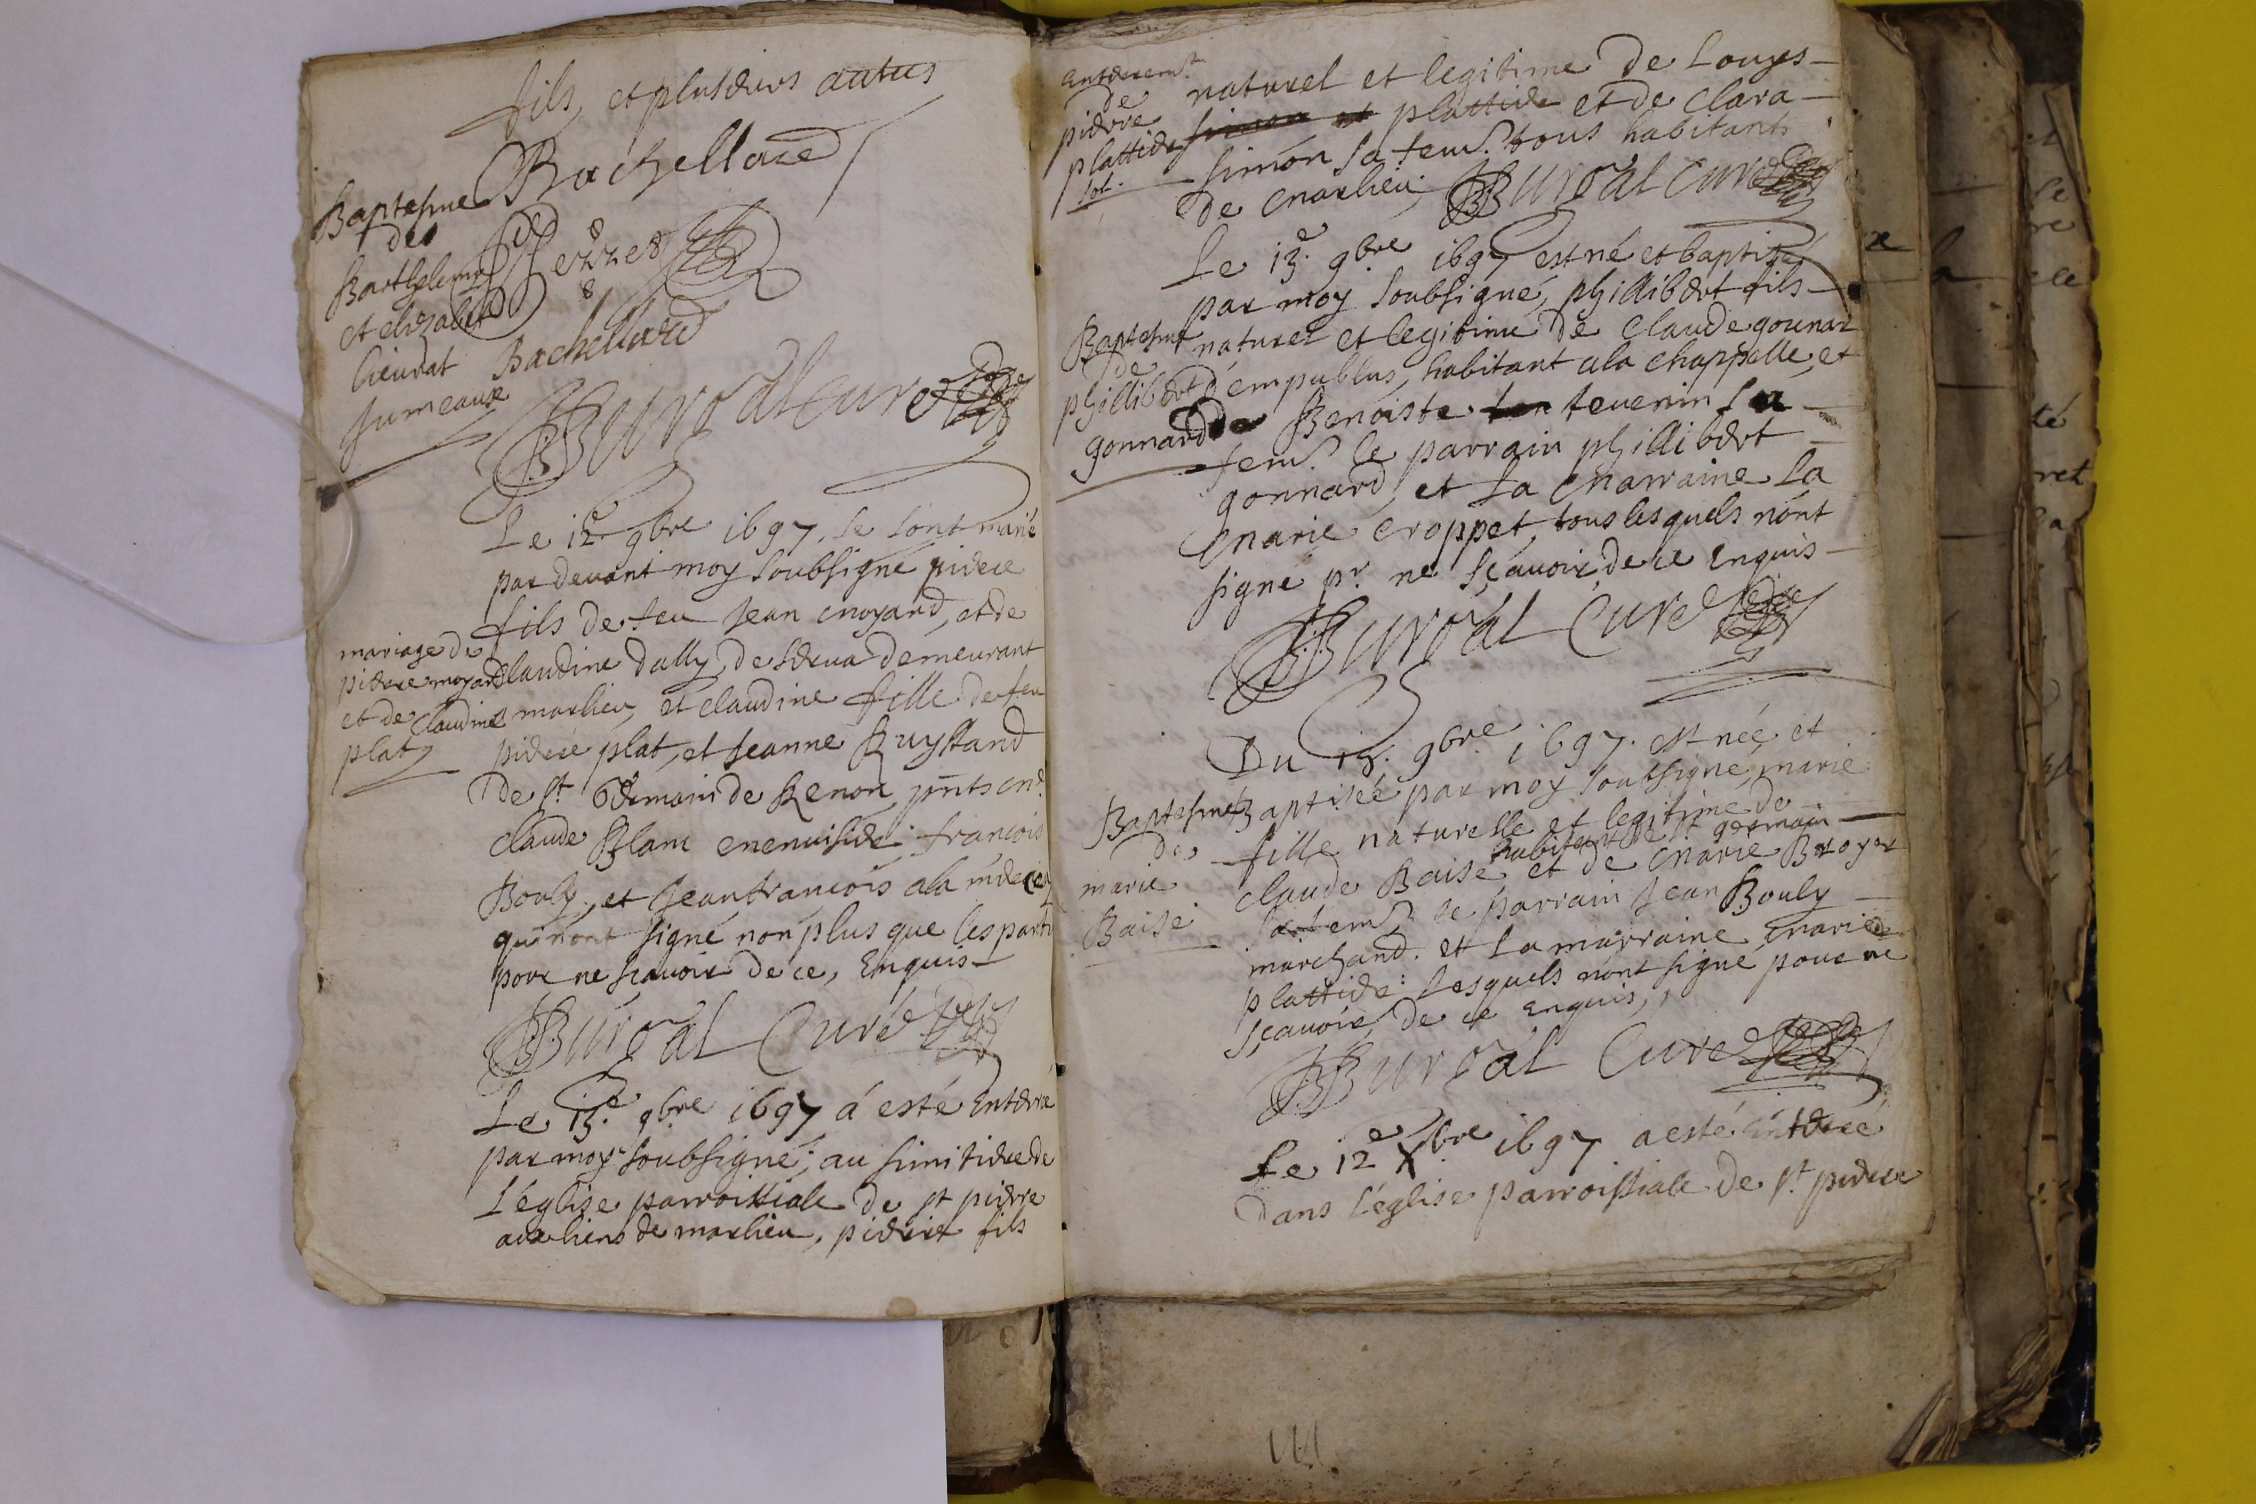 fils, et plusieurs autres
Bachellard
Baptesme
des
Barthelemy
et elizabet
lieurat
Jumeaux
Bachellard
BBuroal curé
Le 12e 9bre 1697, se sont marié
par devant moy soubsigné pierre
fils de feu Jean moyard, et de
mariage de
pierre moyard
et de Claudine
plat
claudine dally, de serva demeurant
marlieu, et claudine fille de feu
pierre plat, et Jeanne
de st Germain de Renon, pnts
claude Blanc menuisier francois
Bouly, et Jean francois
qui n'ont signé non plus que les parti
pour ne scavoir de ce, Enquis
BBuroal Curé
Le 13e 9bre 1697 á esté Enterré
par moy soubsigné; au simitiere de
l'église parroissiale de st pierre
aux liens de marlieu, pierre fils
Enterremt
de
pierre
plattide
naturel et legitime de Louys
simon et plattide et de Clara
Simon sa fem. tous habitants
de marlieu. BBuroal Curé
Le 13e 9bre 1697 est né et baptisé
par moy soubsigné, phillibert fils
Baptesme
de
phillibert
gonnard
naturel et legitime de Claude gounar
d'empublus, habitant a la chappelle, et
de Benoiste tevenin sa
fem. le parrain phillibert
gonnard, et la marraine la
marie croppet, tous lesquels n'ont
signe pr ne sçavoir de ce Enquis
BBuroal Curé
Du 15. 9bre 1697. est née et
Baptesme
de
marie
Baise
Baptisée par moy soubsigné, marie
fille naturelle et legitime de
habitant de st germain
claude Baise et de marie Broyer
sa fem. le parrain Jean Bouly
marchand. et la marraine marie
plattide: lesquels n'ont signe pour ne
sçavoir, de ce enquis,
BBuroal Curé
Le 12e Xbre 1697 a esté Enterré
dans l'église parroissiale de st pierre